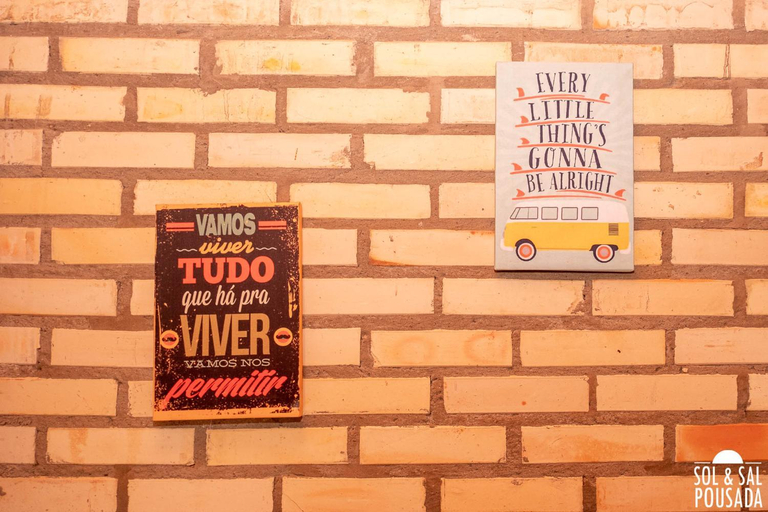 VAMOS
viver
TUDO
que há pra
VIVER
VAMOS NOS
permitir
EVERY
LITTLE
THING'S
GONNA
BE ALRIGHT
SOL & SAL
POUSADA